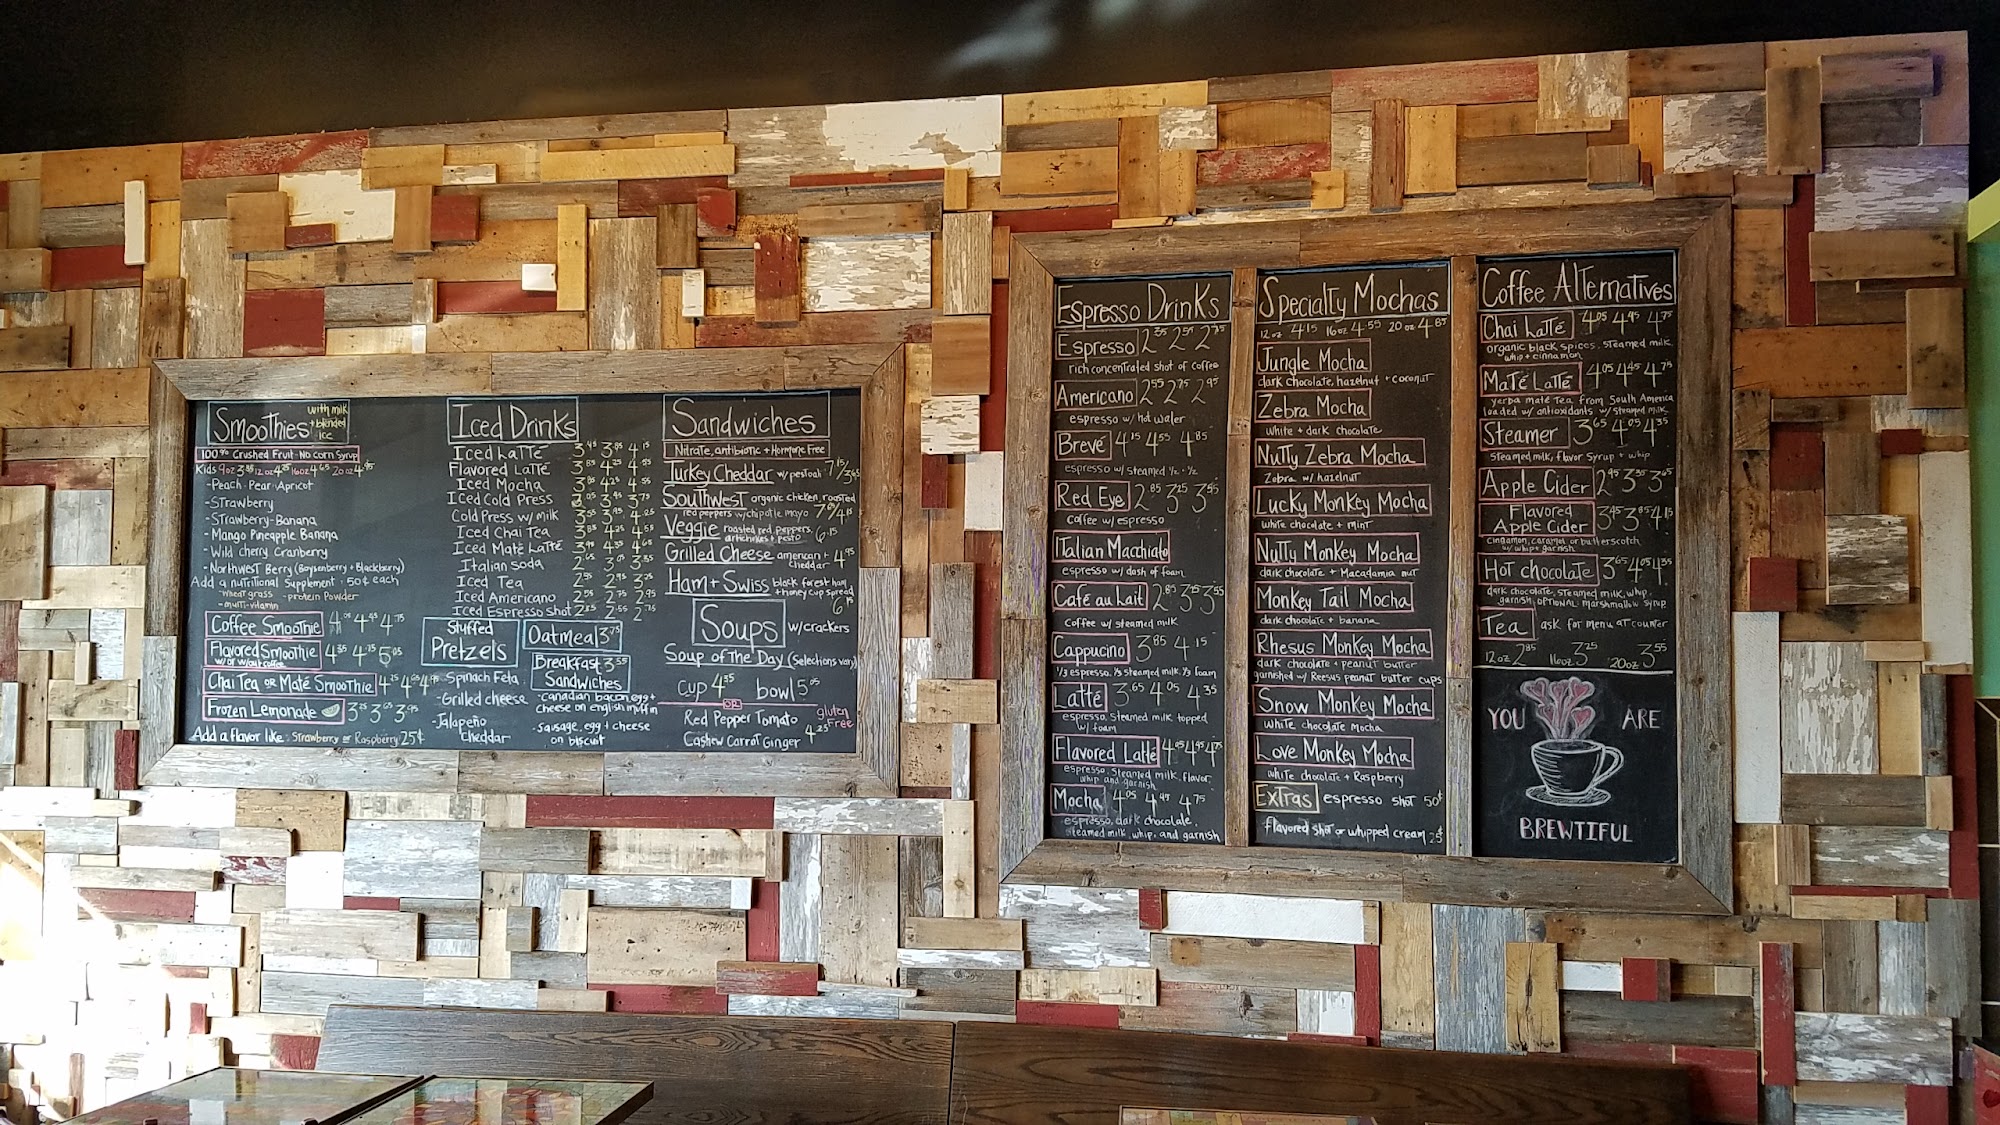 Smoothies with milk + blended ice
100% Crushed Fruit - No Corn Syrup
Kids 9oz 3.85 12oz 4.35 16oz 4.65 20oz 4.95
- Peach - Pear - Apricot
- Strawberry
- Strawberry - Banana
- Mango Pineapple Banana
- Wild cherry Cranberry
- Northwest Berry (Boysenberry + Blackberry)
Add a nutritional supplement : 50¢ each
- Wheat grass - protein Powder
- multi-vitamin
Coffee Smoothie 4.05 4.45 4.75
Flavored Smoothie 4.35 4.75 5.05
w/ or w/out coffee
Chai Tea or Maté Smoothie 4.25 4.65 4.95
Frozen Lemonade 3.25 3.65 3.95
Add a flavor like: Strawberry or Raspberry 25¢
Iced Drinks
Iced Latté 3.45 3.85 4.15
Flavored Latté 3.85 4.25 4.55
Iced Mocha 3.85 4.25 4.55
Iced Cold Press 3.45 3.75
Cold Press w/ milk 3.55 3.95 4.25
Iced Chai Tea 3.85 4.25 4.55
Iced Maté Latté 3.95 4.35 4.65
Italian Soda 2.65 3.05 3.35
Iced Tea 2.55 2.95 3.25
Iced Americano 2.55 2.75 2.95
Iced Espresso Shot 2.35 2.55 2.75
Stuffed Pretzels
- Spinach Feta
- Grilled cheese
- Jalapeño cheddar
Oatmeal 3.75
Breakfast Sandwiches 3.55
- Canadian bacon, egg + cheese on english muffin
- Sausage, egg + cheese on biscuit
Sandwiches
Nitrate, antibiotic + Hormone Free
Turkey Cheddar w/ pesto aoli 7.15/3.65
Southwest organic chicken, roasted
red peppers w/ chipotle mayo 7.65/4.15
Veggie roasted red peppers, artichokes + pesto 6.15
Grilled Cheese american + cheddar 4.95
Ham + Swiss black forest ham + honey cup spread 6.15
Soups w/ crackers
Soup of the Day (selections vary)
cup 4.35 bowl 5.05
OR
Red Pepper Tomato gluten free
Cashew Carrot Ginger 4.25
Espresso Drinks
Espresso 2.35 2.55 2.75
rich concentrated shot of coffee
Americano 2.55 2.75 2.95
espresso w/ hot water
Brevé 4.15 4.55 4.85
espresso w/ steamed ½ + ½
Red Eye 2.85 3.25 3.55
coffee w/ espresso
Italian Macchiato
espresso w/ dash of foam
Café au Lait 2.85 3.25 3.55
coffee w/ steamed milk
Cappucino 3.85 4.15
⅓ espresso, ⅓ steamed milk, ⅓ foam
Latté 3.65 4.05 4.35
espresso, steamed milk topped
w/ foam
Flavored Latté 4.05 4.45 4.75
espresso, steamed milk, flavor,
whip and garnish
Mocha 4.05 4.45 4.75
espresso, dark chocolate,
steamed milk, whip, and garnish
Specialty Mochas
12oz 4.15 16oz 4.55 20oz 4.85
Jungle Mocha
dark chocolate, hazelnut + coconut
Zebra Mocha
white + dark chocolate
Nutty Zebra Mocha
Zebra w/ hazelnut
Lucky Monkey Mocha
white chocolate + mint
Nutty Monkey Mocha
dark chocolate + Macadamia nut
Monkey Tail Mocha
dark chocolate + banana
Rhesus Monkey Mocha
dark chocolate + peanut butter
garnished w/ Reesus peanut butter cups
Snow Monkey Mocha
white chocolate Mocha
Love Monkey Mocha
white chocolate + Raspberry
Extras espresso shot 50¢
flavored shot or whipped cream 25¢
Coffee Alternatives
Chai Latté 4.05 4.45 4.75
organic black spices, steamed milk,
whip + cinnamon
Maté Latté 4.05 4.45 4.75
yerba maté tea from South America
loaded w/ antioxidants w/ steamed milk
Steamer 3.65 4.05 4.35
steamed milk, flavor syrup + whip
Apple Cider 2.95 3.35 3.65
Flavored Apple Cider 3.45 3.85 4.15
cinnamon, caramel, or butterscotch
w/ whip + garnish
Hot chocolate 3.65 4.05 4.35
dark chocolate, steamed milk, whip,
garnish, optional: marshmallow syrup
Tea ask for menu at counter
12oz 2.85 16oz 3.25 20oz 3.55
YOU ARE
BREWTIFUL